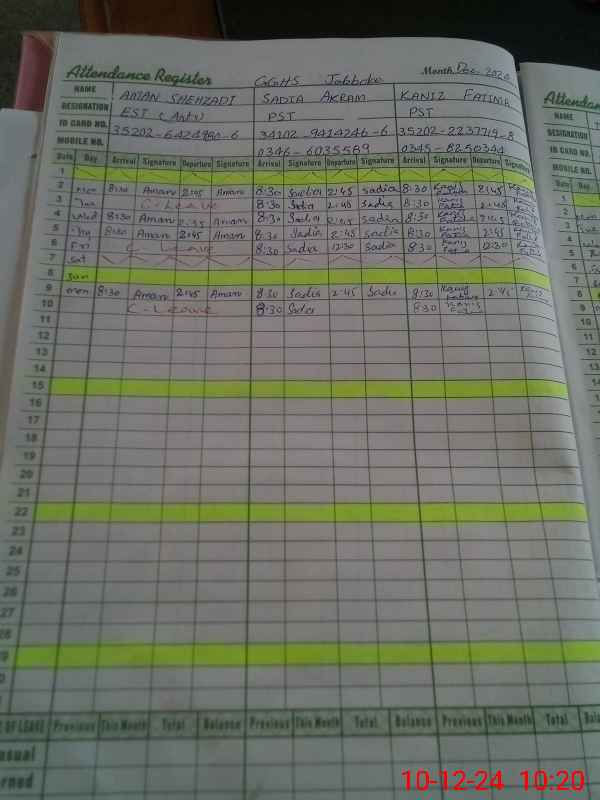 Attendance Register GGHS Jabboke Month Dec. 2024
NAME AMAN SHEHZADI SADIA AKRAM KANIZ FATIMA
DESIGNATION EST (Arts) PST PST
ID CARD NO. 35202-6424980-6 34102-9414246-6 35202-2237719-8
MOBILE NO. 0346-6035589 0345-8250344
Date Day Arrival Signature Departure Signature Arrival Signature Departure Signature Arrival Signature Departure Signature
1
2 mon 8:30 Aman 2:45 Aman 8:30 Sadia 2:45 Sadia 8:30 Kaniz Fatima 2:45
3 Tue C-Leave 8:30 Sadia 2:45 Sadia 8:30 2:45
4 Wed 8:30 Aman 2:45 Aman 8:30 Sadia 2:45 Sadia 8:30 2:45
5 Thu 8:30 Aman 2:45 Aman 8:30 Sadia 2:45 Sadia 8:30 2:45
6 Fri C Leave 8:30 Sadia 12:30 Sadia 8:30 12:30
7 Sat
8 Sun
9 mon 8:30 Aman 2:45 Aman 8:30 Sadia 2:45 Sadia 8:30 Kaniz Fatima 2:45
10 C-Leave 8:30 Sadia 8:30 Kaniz
11
12
13
14
15
16
17
18
19
20
21
22
23
24
25
26
27
28
OF LEAVE Previous This Month Total Balance Previous This Month Total Balance Previous This Month Total
asual
rned
Attendan
NAME
DESIGNATION
ID CARD NO.
MOBILE NO.
Date Day
1
2
3
4
5
6
7
8
9
10
11
12
13
14
10-12-24 10:20